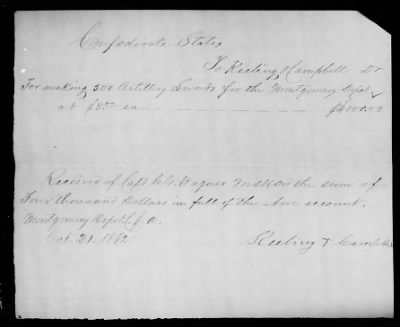 Confederate States
To Keeling & Campbell Dr
For making 500 Artillery Swords for the Montgomery Depot
at $8.00 ea $4000.00
Received of Capt C. G. Wagner the sum of
Four thousand dollars in full of the above account.
Montgomery Depot
Oct. 21. 1862
Keeling & Campbell